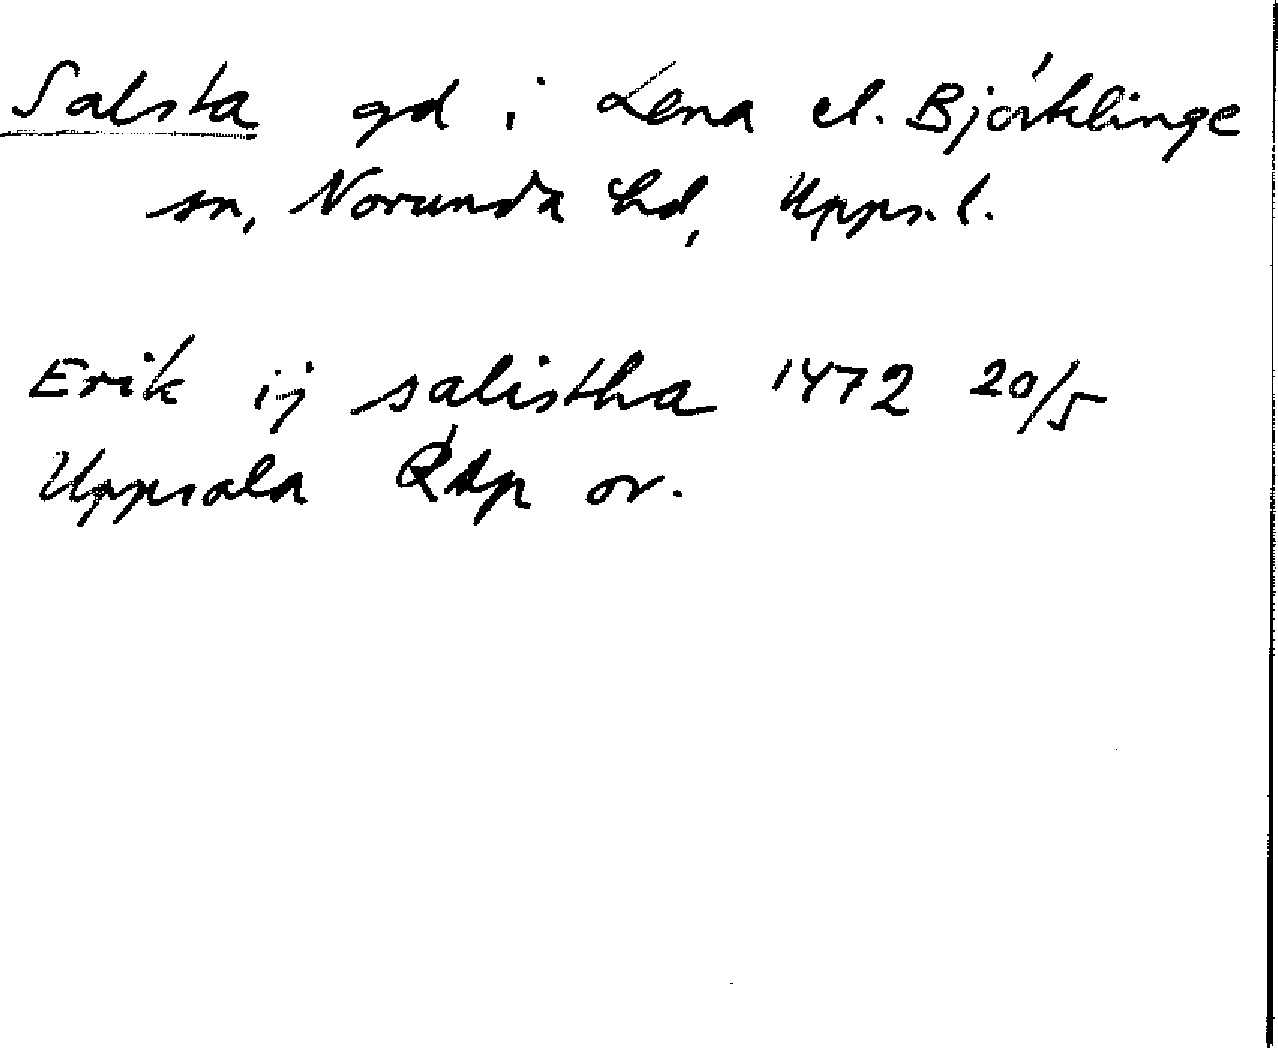 Salsta gd i Lena el. Björklinge
sn, Norunda hd, Upps. l.
Erik ij salistha 1472 20/5
Uppsala RAp or.